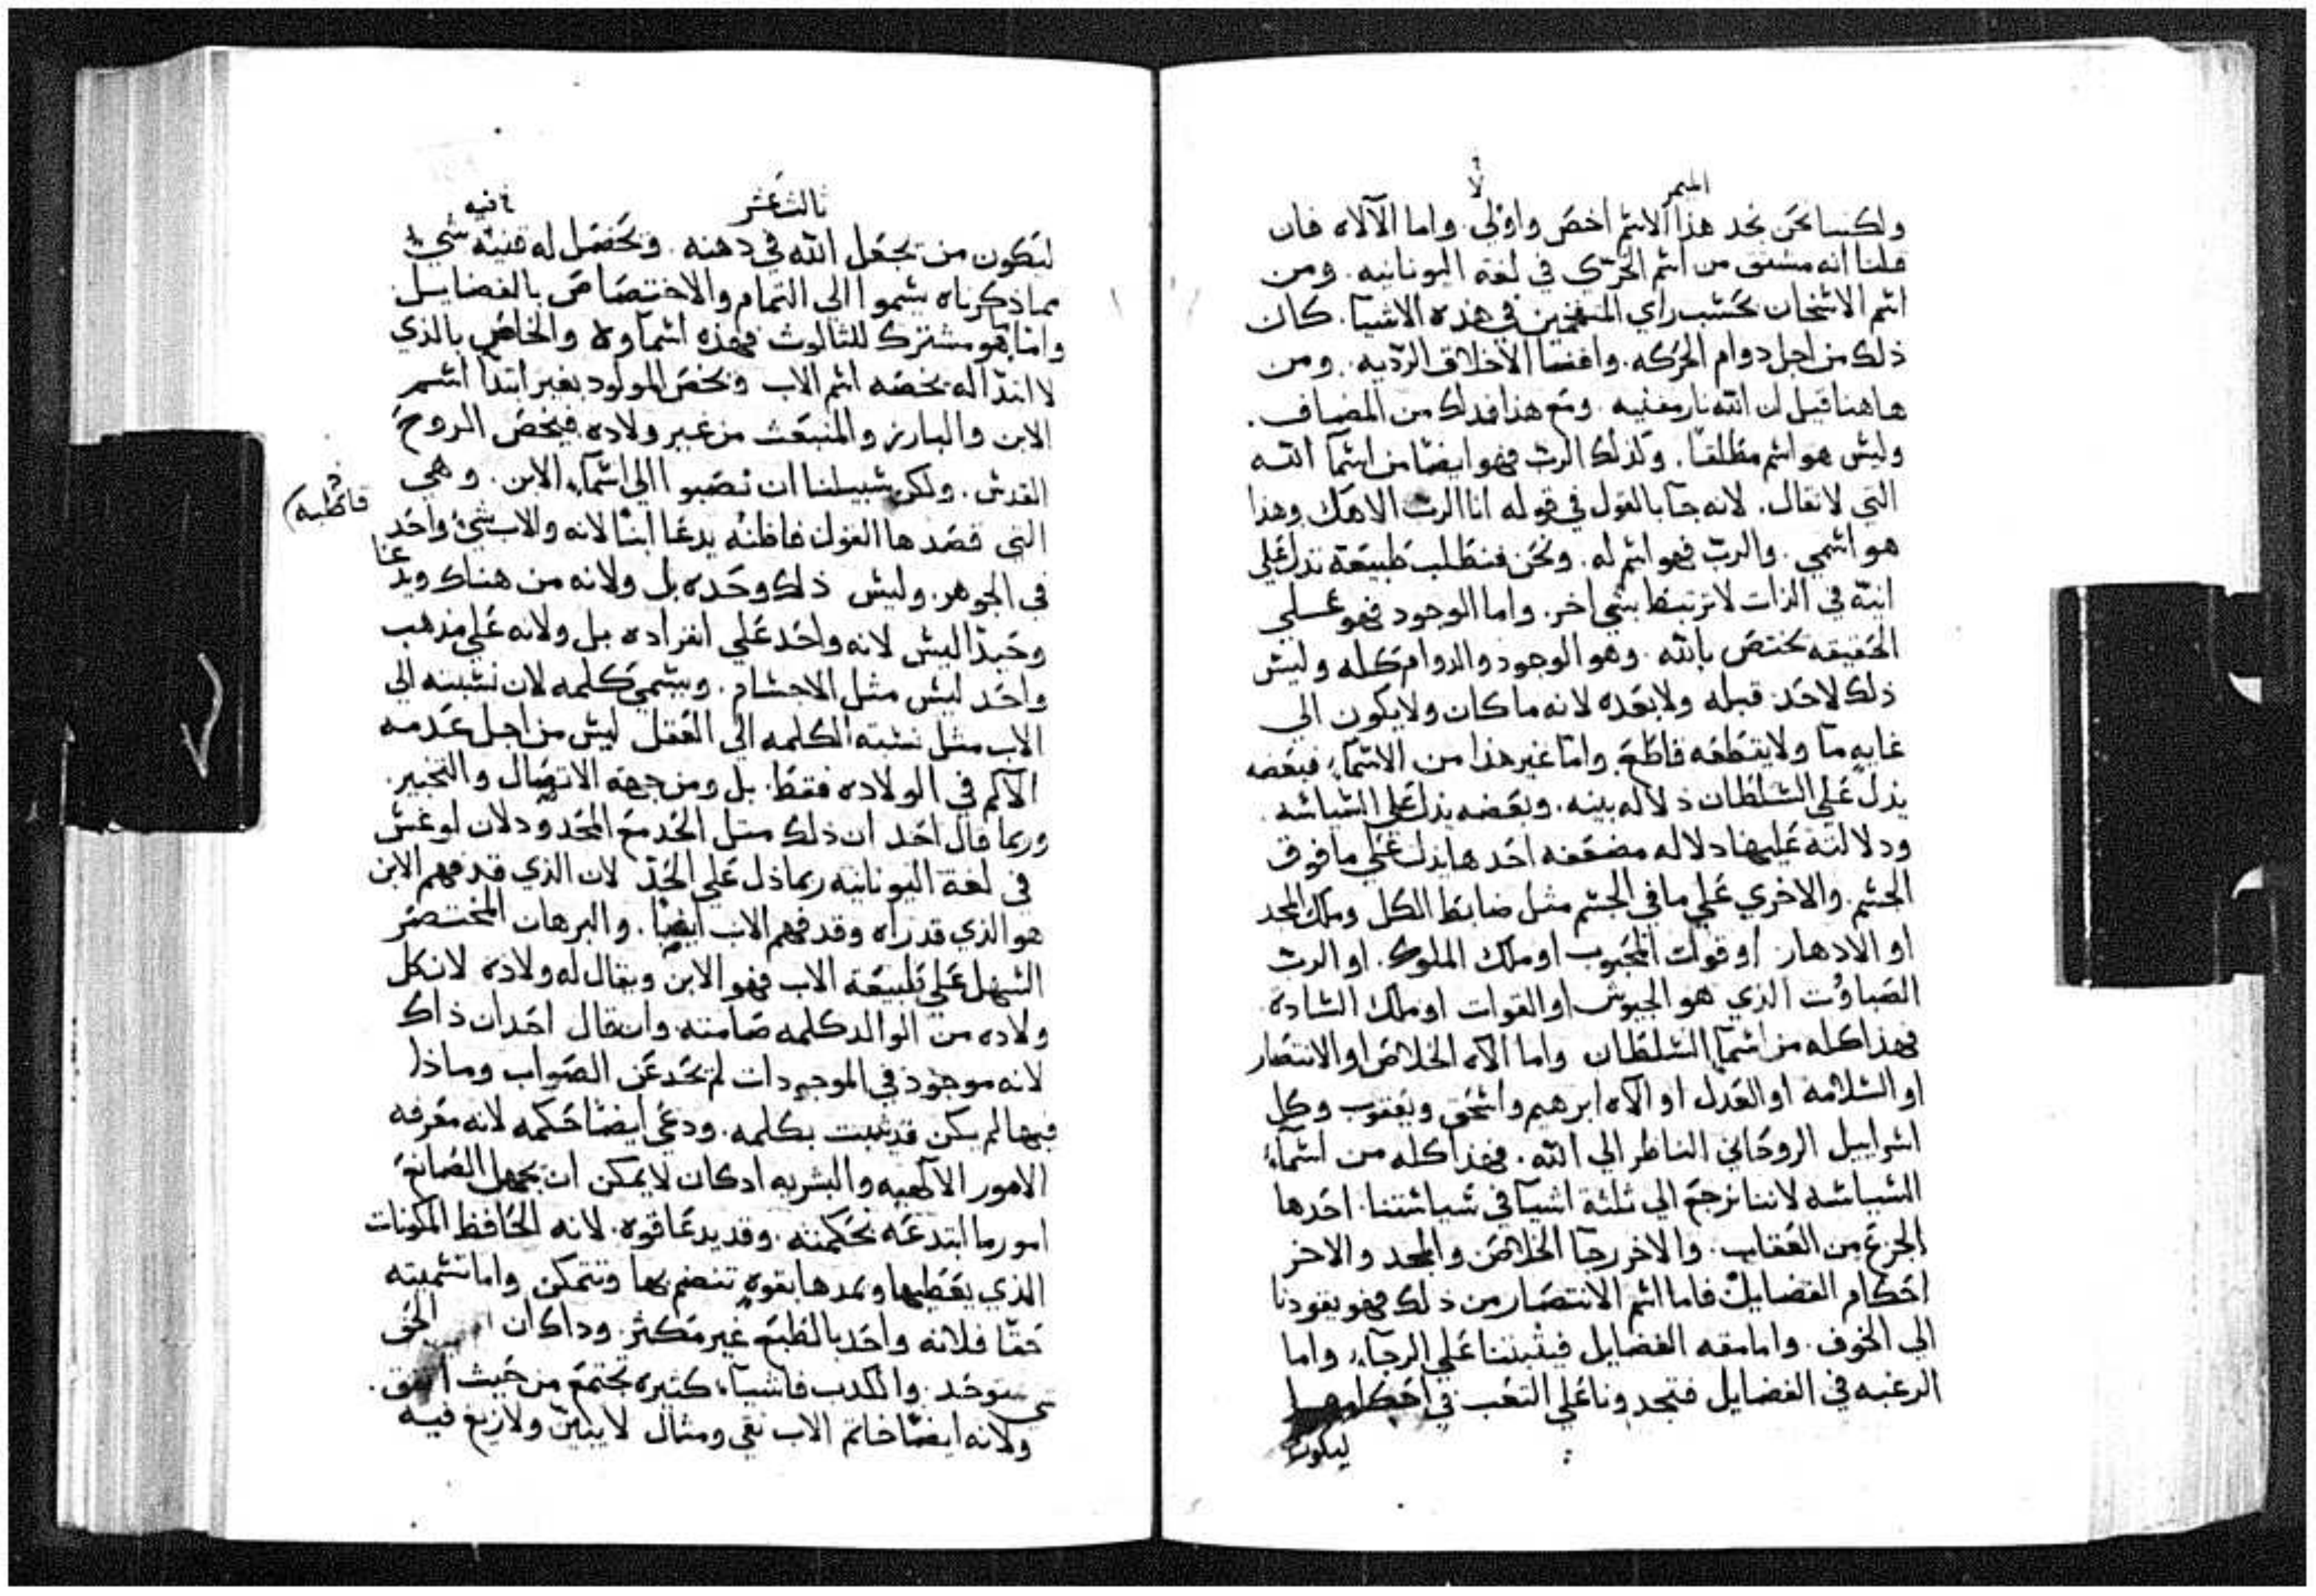 الميمر
لا
ولكننا نحن نجد هذا الاسم اخص واولي. واما الآلاه فان
قلنا انه مشتق من اسم الجري في لغة اليونانيه. ومن
اسم الاسخان بحسب راي في هذه الاشيا. كان
ذلك من اجل دوام الحركه. وافنا الاخلاق الرديه. ومن
هاهنا قيل ان الله نار مفنيه. ومع هذا فذلك من المضاف.
وليس هو اسم مطلقا. وكذلك الرب فهو ايضا من اسما الله
التي لا تقال. لانه جا بالقول في قوله انا الرب الاهك وهذا
هو اسمي. والرب فهو اسم له. ونحن فنطلب طبيعة تدل علي
انية في الذات لا ترتبط بشي اخر. واما الوجود فهو علي
الحقيقه يختص بالله. وهو الوجود والدوام كله وليس
ذلك لاحد قبله ولا بعده لانه ما كان ولا يكون الي
غايه ما ولا يقطعه قاطع واما غير هذا من الاسماء فبعضه
يدل علي السلطان دلاله بينه. وبعضه يدل علي السياسه.
ودلالته عليها دلاله مضعفه احدها يدل علي ما فوق
الجسم. والاخري علي ما في الجسم مثل ضابط الكل وملك المجد
او الادهار او قوات المحبوب او ملك الملوك. او الرب
الصباوت الذي هو الجيوش او القوات او ملك الساده.
فهذا كله من اسما السلطان واما الاه الخلاص او الانتصار
او السلامه او العدل او الاه ابرهيم واسحق ويعقوب وكل
اسراييل الروحاني الناظر الي الله. فهذا كله من اسماء
السياسه لاننا نرجع الي ثلثة اشيا في سياستنا. احدها
الجزع من العقاب. والاخر رجا الخلاص والمجد والاخر
احكام الفضايل فاما اسم الانتصار من ذلك فهو يقودنا
الي الخوف. واما مقه الفضايل فيثبتنا علي الرجاء واما
الرغبه في الفضايل فتجدونا علي التعب في احكامها
ليكون
ثالث عشر
ليكون من يجعل الله في ذهنه. ويحصل له قنيه شي
مما ذكرناه يسموا الي التمام والاختصاص بالفضايل
واما ما هو مشترك للثالوث فهذه اسماوه والخاص بالذي
لا ابتدا له يخصه اسم الاب ويخص المولود بغير ابتدا اسم
الابن والبارز والمنبعث من غير ولاده فيخص الروح
القدس. ولكن سبيلنا ان نصبوا الي اسماء الابن. وهي
قاطبه
التي قصدها القول قاطبه يدعا ابنا لانه والاب شي واحد
في الجوهر. وليس ذلك وحده بل ولانه من هناك ويدعا
وحيدا ليس لانه واحد علي انفراده بل ولانه علي مذهب
واحد ليس مثل الاجسام. ويسمي كلمه لان نسبته الي
الاب مثل نسبته الكلمه الي العقل ليس من اجل عدمه
الالم في الولاده فقط. بل ومن جهة الاتصال والتخبير.
وربما قال احد ان ذلك مثل الحد مع المحدود لان لوغس
في لغة اليونانيه ربما دل علي الحد لان الذي قد فهم الابن
هو الذي قد راه وقد فهم الاب ايضا. والبرهان المختصر
السهل علي طبيعة الاب فهو الابن ويقال له ولاده لان كل
ولاده من الوالد كلمه صامته وان قال احد ان ذاك
لانه موجود في الموجودات لم يحد عن الصواب وماذا
فيها لم يكن قد ثبت بكلمه. ودعي ايضا حكمه لانه معرفه
الامور الالهيه والبشريه اذ كان لا يمكن ان يجهل الصانع
امور ما ابتدعه بحكمته. وقد يدعا قوه. لانه الحافظ المكونات
الذي يعطيها ويمدها بقوه تنضم بها وتتمكن واما تسميته
حقا فلانه واحد بالطبع غير متكثر. وذاك ان الحق
متوحد. والكذب فاشياء كثيره تجتمع من حيث اتفق.
ولانه ايضا خاتم الاب نقي ومثال لا يتبين ولا زيغ فيه